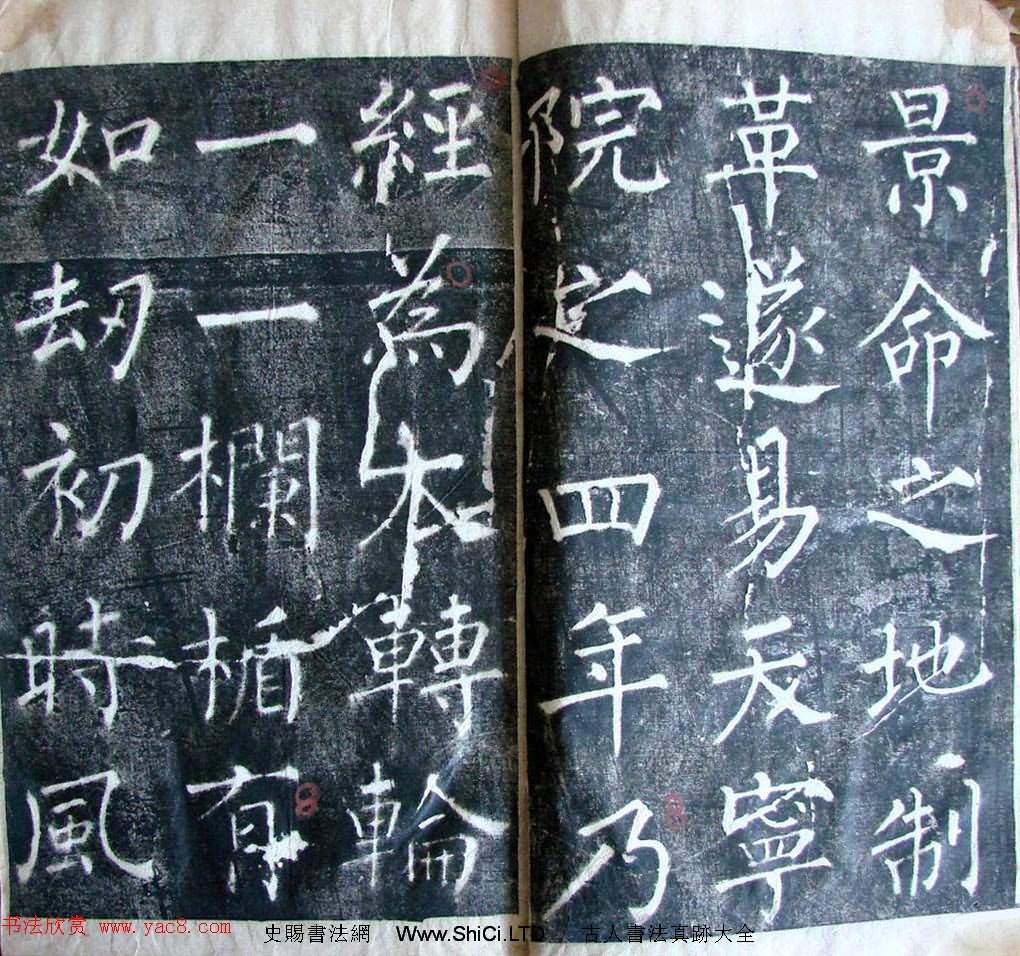 景命之地制
革遂易天寧
院定四年乃
經為本轉輪
一一欄楯有
如刼初時風
书法欣赏 www.yac8.com
史賜書法網 Www.ShiCi.LTD / 古人書法真跡大全